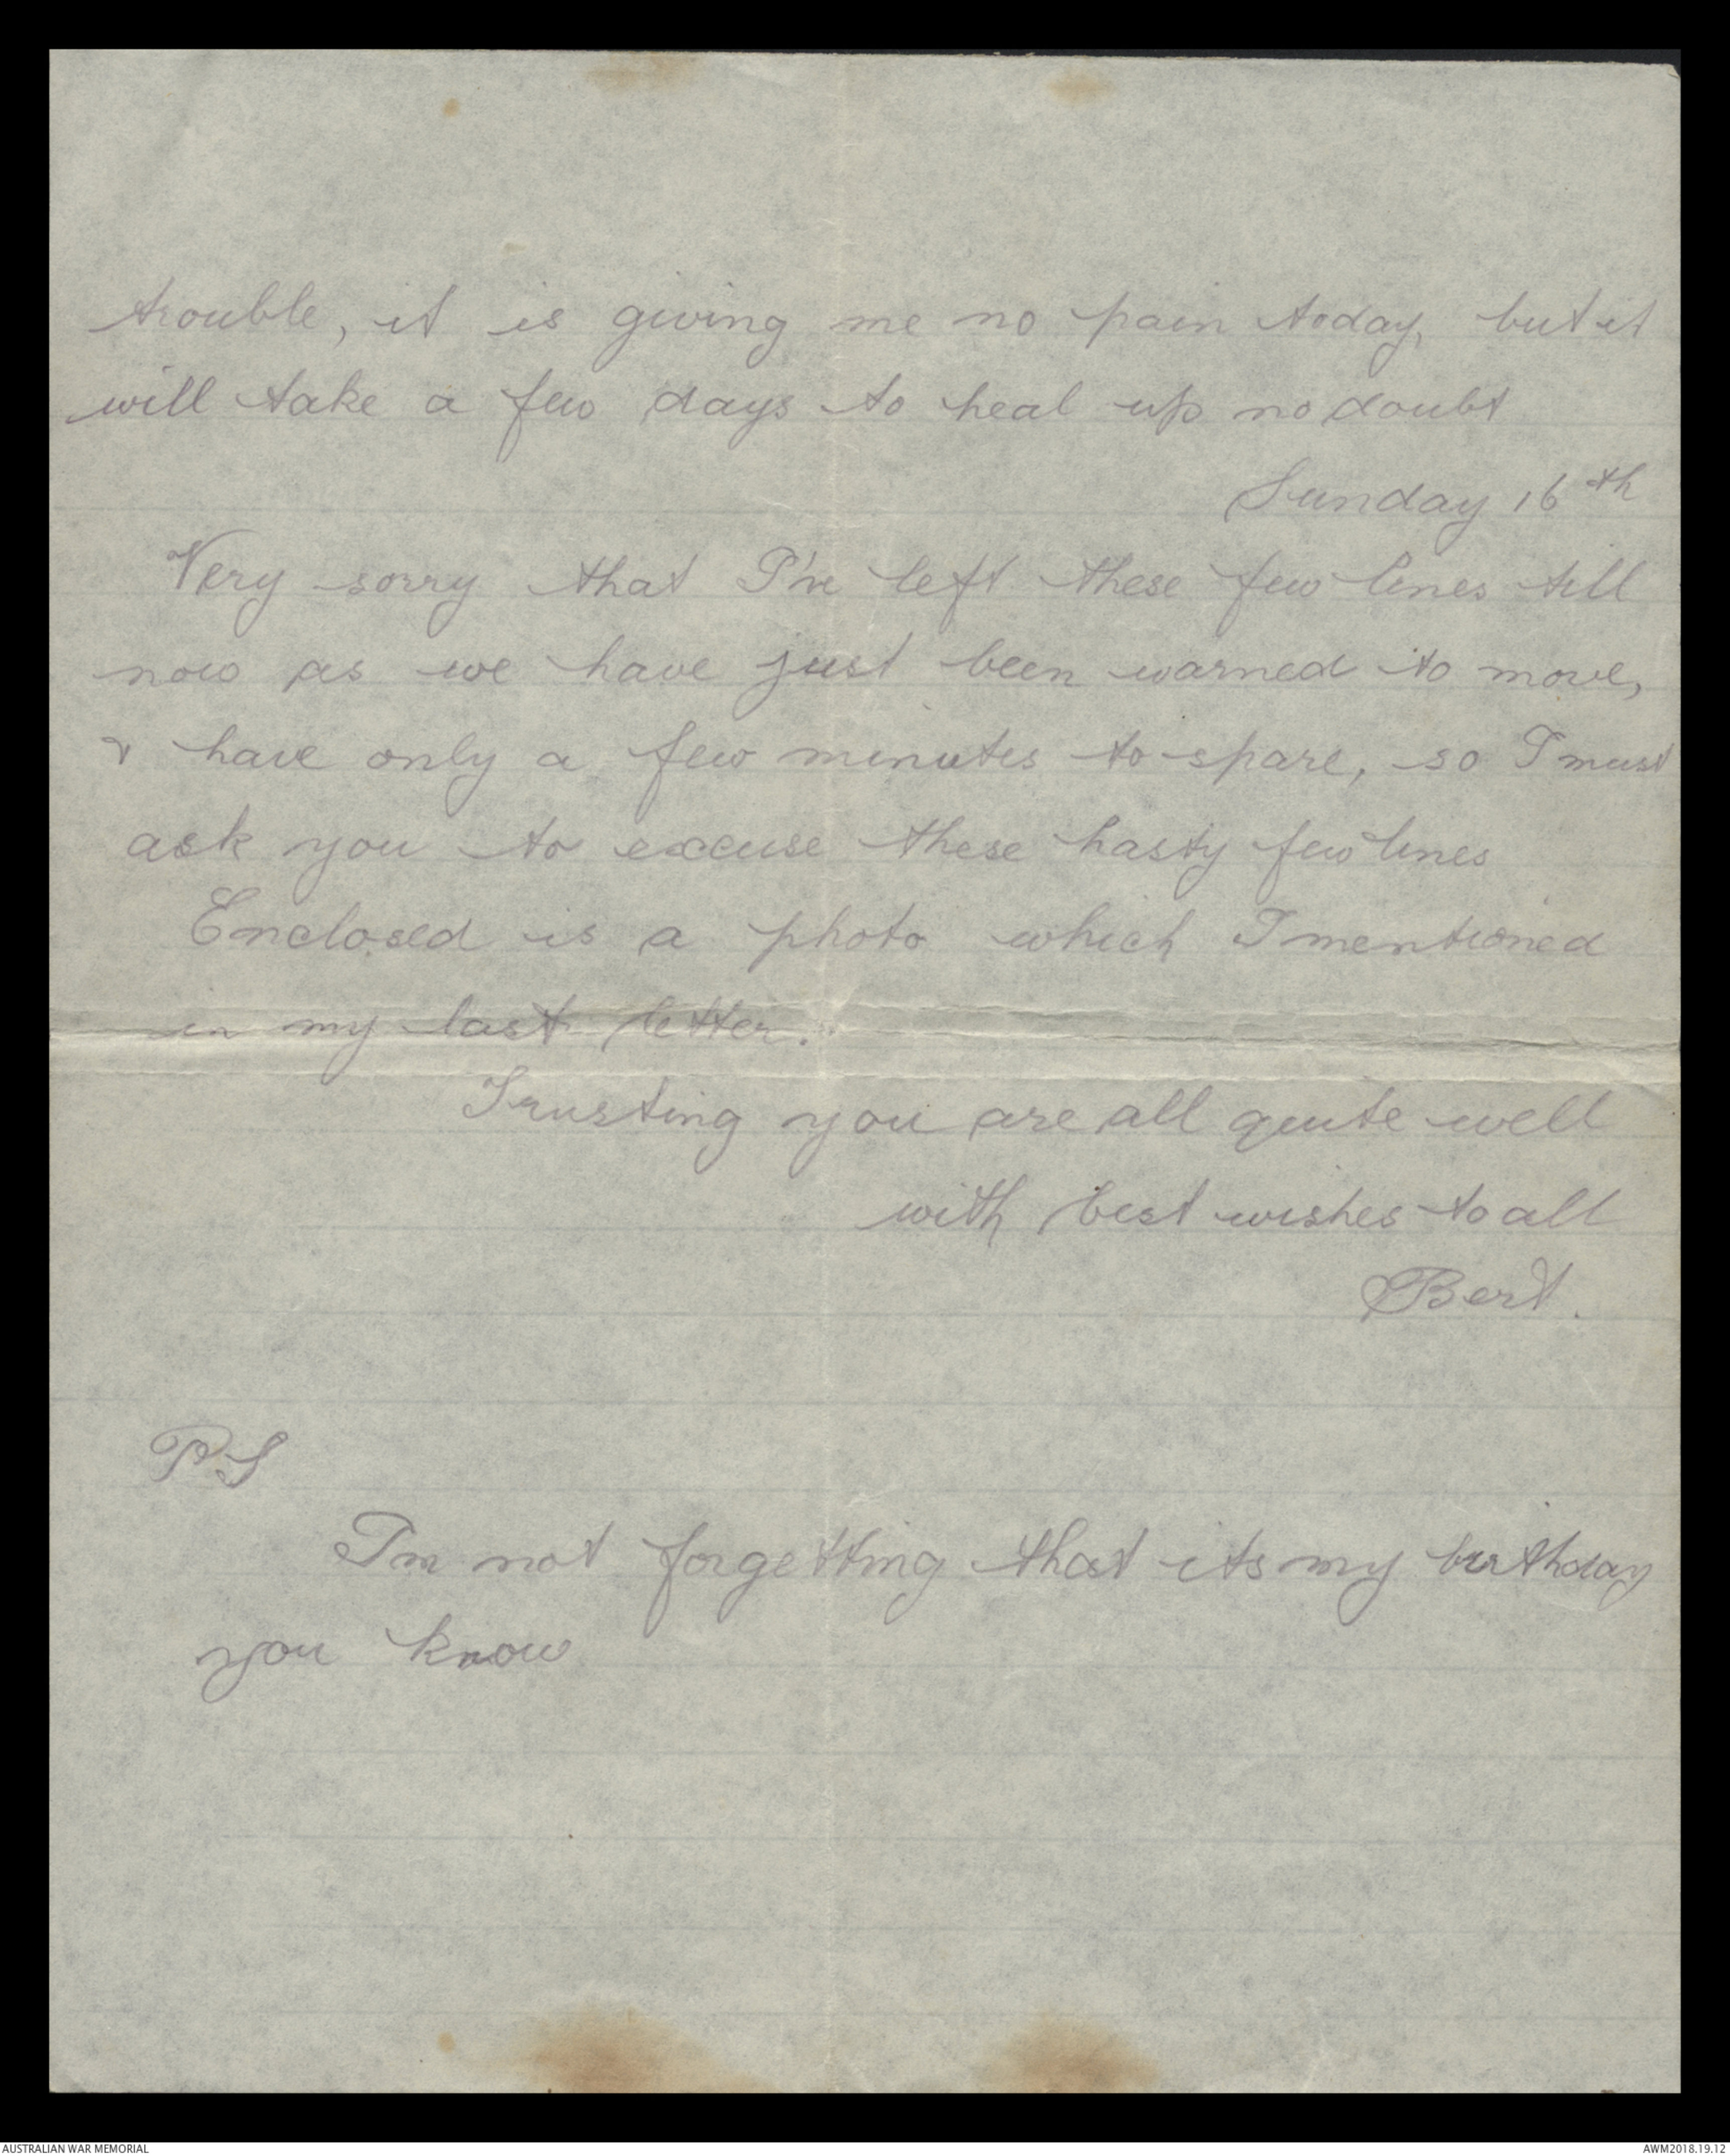 trouble, it is giving me no pain today, but it
will take a few days to heal up no doubt
Sunday 16th
Very sorry that I've left these few lines till
now as we have just been warned to move,
& have only a few minutes to spare, so I must
ask you to excuse these hasty few lines
Enclosed is a photo which I mentioned
in my last letter.
Trusting you are all quite well
with best wishes to all
Bert.
P.S
I'm not forgetting that its my birthday
you know
AUSTRALIAN WAR MEMORIAL
AWM2018.19.12